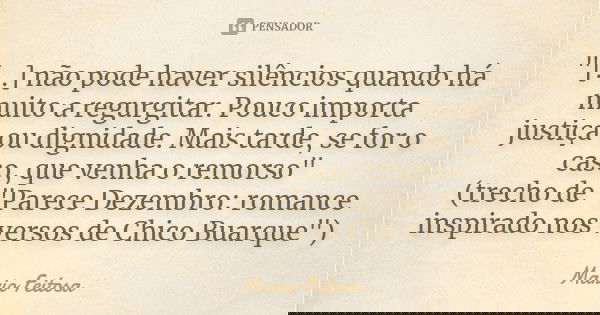 PENSADOR
"[...] não pode haver silêncios quando há
muito a regurgitar. Pouco importa
justiça ou dignidade. Mais tarde, se for o
caso, que venha o remorso"
(trecho de "Parece Dezembro: romance
inspirado nos versos de Chico Buarque")
Mario Feitosa